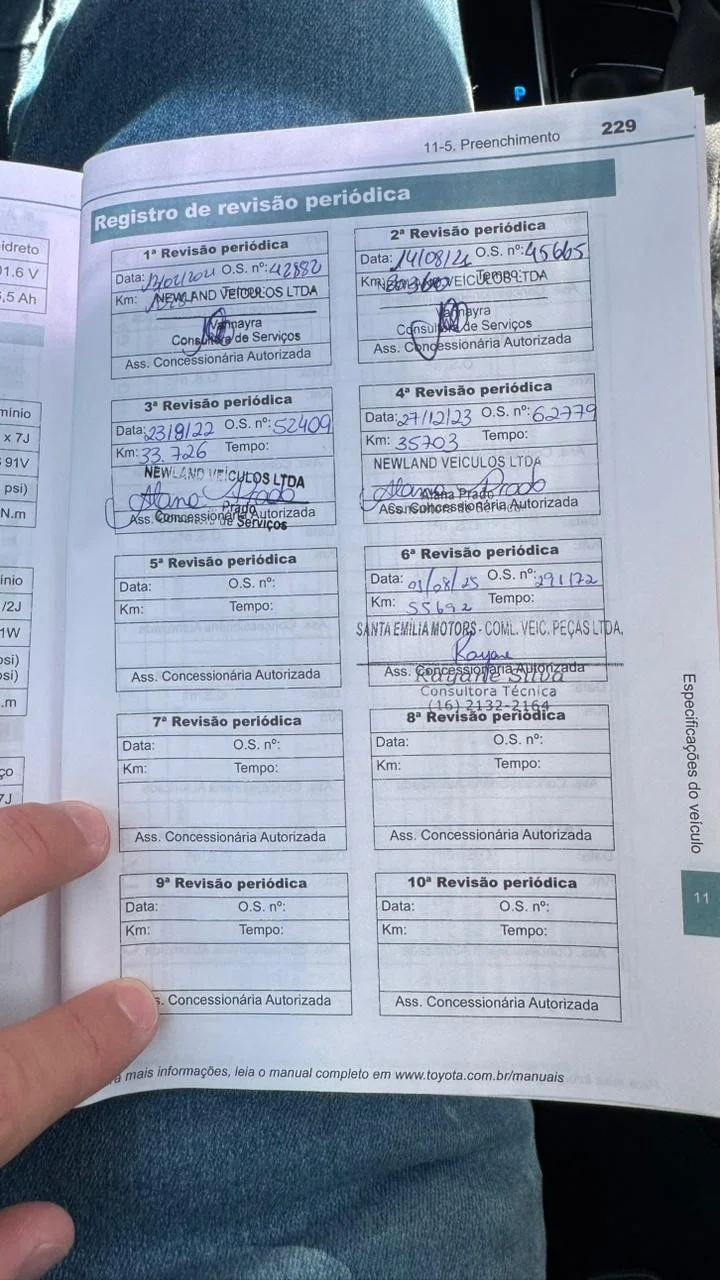 11-5. Preenchimento 229
Registro de revisão periódica
1ª Revisão periódica
Data: O.S. nº: 42882
Km: NEWLAND VEÍCULOS LTDA
Vannayra
Consultora de Serviços
Ass. Concessionária Autorizada
2ª Revisão periódica
Data: 14/08/21 O.S. nº: 45665
Km: VEÍCULOS LTDA
Vannayra
Consultora de Serviços
Ass. Concessionária Autorizada
3ª Revisão periódica
Data: 23/9/22 O.S. nº: 52409
Km: 33.726 Tempo:
NEWLAND VEÍCULOS LTDA
Alana Prado
Prado
Ass. Concessionária Autorizada
de Serviços
4ª Revisão periódica
Data: 27/12/23 O.S. nº: 62779
Km: 35703 Tempo:
NEWLAND VEÍCULOS LTDA
Alana Prado
Alana Prado
Ass. Concessionária Autorizada
5ª Revisão periódica
Data: O.S. nº:
Km: Tempo:
Ass. Concessionária Autorizada
6ª Revisão periódica
Data: 01/08/25 O.S. nº: 291172
Km: 55692 Tempo:
SANTA EMILIA MOTORS - COML. VEIC. PEÇAS LTDA.
Rayane
Ass. Concessionária Autorizada
Rayane Silva
Consultora Técnica
(16) 2132-2164
7ª Revisão periódica
Data: O.S. nº:
Km: Tempo:
Ass. Concessionária Autorizada
8ª Revisão periódica
Data: O.S. nº:
Km: Tempo:
Ass. Concessionária Autorizada
9ª Revisão periódica
Data: O.S. nº:
Km: Tempo:
s. Concessionária Autorizada
10ª Revisão periódica
Data: O.S. nº:
Km: Tempo:
Ass. Concessionária Autorizada
a mais informações, leia o manual completo em www.toyota.com.br/manuais
Especificações do veículo
11
idreto
01.6 V
,5 Ah
mínio
x 7J
91V
psi)
N.m
ínio
/2J
1W
psi)
psi)
.m
ço
7J
P